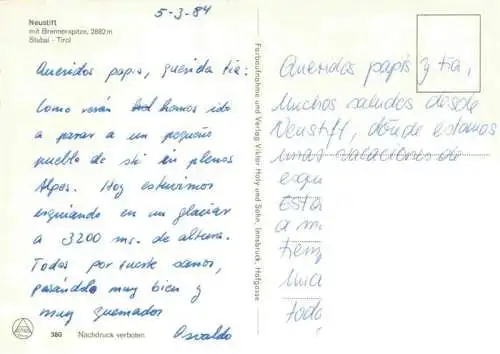 Neustift
mit Brennerspitze, 2882 m
Stubai - Tirol
5-3-84
Queridos papis, querida tía:
Como verán hemos ido
a parar a un pequeño
pueblo de ski en plenos
Alpes. Hoy estuvimos
esquiando en un glaciar
a 3200 ms. de altura.
Todos por suerte sanos,
pasándolo muy bien y
muy quemados
Osvaldo
380 Nachdruck verboten
Farbaufnahme und Verlag Viktor Hoty und Sohn, Innsbruck, Hofgasse
Queridos papis y tia,
Muchos saludos desde
Neustift, dónde estamos
unas vacaciones de
esqui
Esta
a m
tiem
una
todo